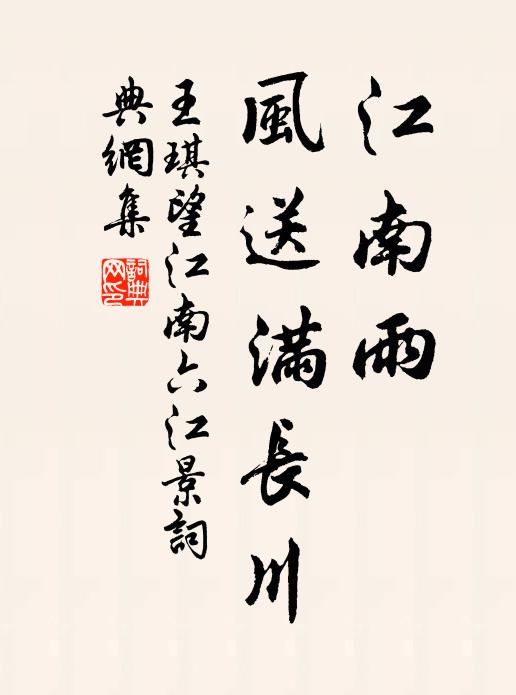 江南雨
風送滿長川
王琪望江南六江景詞
典網集
詞典
网印